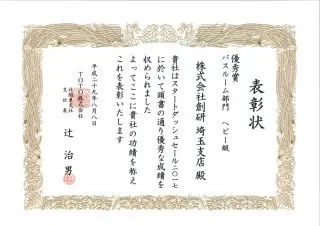 表彰状
優秀賞
バスルーム部門 ヘビー級
株式会社創研 埼玉支店 殿
貴社はスタートダッシュセール二〇一七
に於いて頭書の通り優秀な成績を
収められました
よってここに貴社の功績を称え
これを表彰いたします
平成二十九年八月八日
TOTO株式会社
北関東支社
支社長
辻 治男